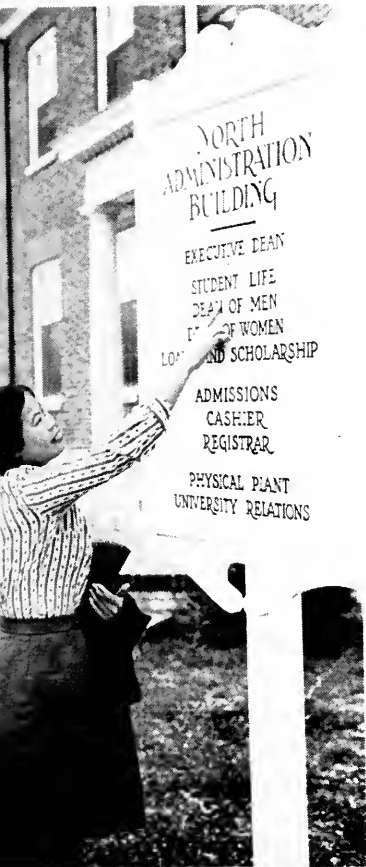 NORTH
ADMINISTRATION
BUILDING
EXECUTIVE DEAN
STUDENT LIFE
DEAN OF MEN
OF WOMEN
AND SCHOLARSHIP
ADMISSIONS
CASHIER
REGISTRAR
PHYSICAL PLANT
UNIVERSITY RELATIONS